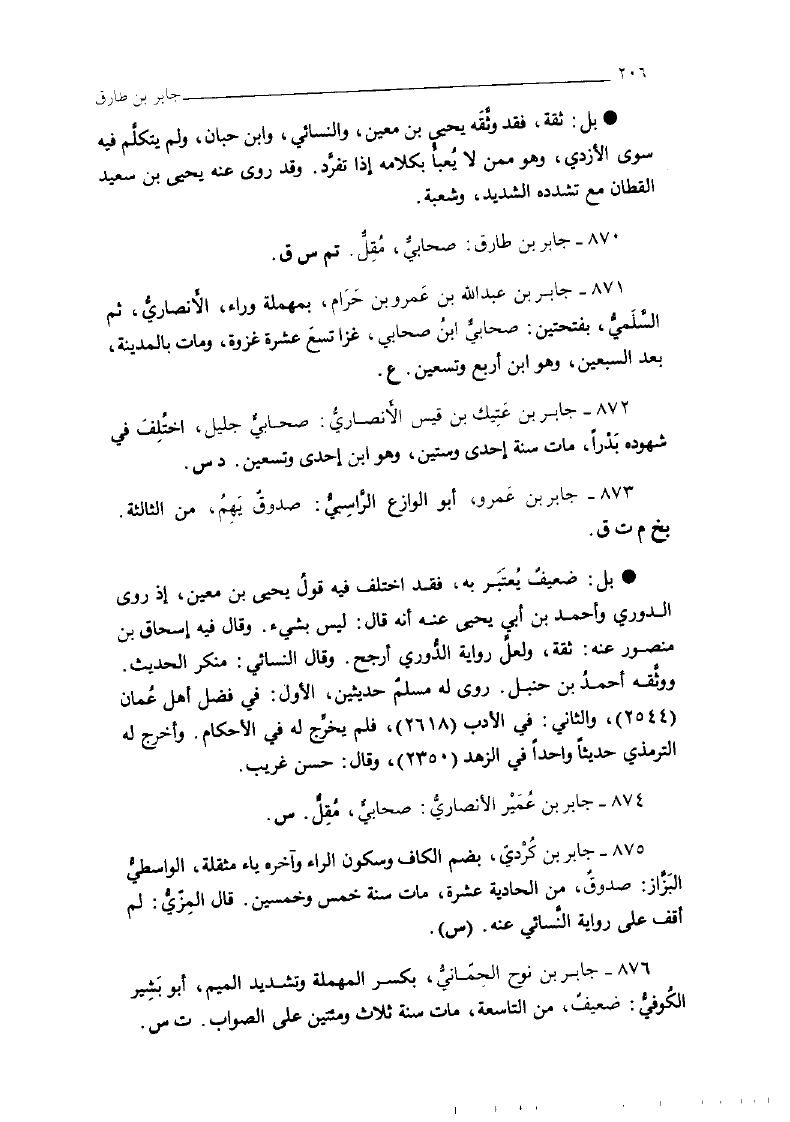 ٢٠٦ جابر بن طارق
● بل: ثقة، فقد وثَّقَه يحيى بن معين، والنسائي، وابن حبان، ولم يتكلَّم فيه
سوى الأزدي، وهو ممن لا يُعبأُ بكلامه إذا تفرَّد. وقد روى عنه يحيى بن سعيد
القطان مع تشدده الشديد، وشعبة.
٨٧٠ ـ جابر بن طارق: صحابيٌّ، مُقِلٌّ. تم س ق.
٨٧١ ـ جابر بن عبدالله بن عَمرو بن حَرَام، بمهملة وراء، الأَنصاريُّ، ثم
السَّلَميُّ، بفتحتين: صحابيٌّ ابنُ صحابي، غزا تسعَ عشرة غزوة، ومات بالمدينة،
بعد السبعين، وهو ابن أربع وتسعين. ع.
٨٧٢ ـ جابر بن عَتِيك بن قيس الأَنصاريُّ: صحابيٌّ جليل، اختُلِفَ في
شهوده بَدْراً، مات سنة إحدى وستين، وهو ابن إحدى وتسعين. د س.
٨٧٣ ـ جابر بن عَمرو، أبو الوازع الرَّاسِبيُّ: صدوقٌ يَهِمُ، من الثالثة.
بخ م ت ق.
● بل: ضعيفٌ يُعتَبَر به، فقد اختلف فيه قولُ يحيى بن معين، إذ روى
الدوري وأحمد بن أبي يحيى عنه أنه قال: ليس بشيء. وقال فيه إسحاق بن
منصور عنه: ثقة، ولعلَّ رواية الدُّوري أرجح. وقال النسائي: منكر الحديث.
ووثَّقه أحمدُ بن حنبل. روى له مسلمٌ حديثين، الأول: في فضل أهل عُمان
(٢٥٤٤)، والثاني: في الأدب (٢٦١٨)، فلم يخرَّج له في الأحكام. وأخرج له
الترمذي حديثاً واحداً في الزهد (٢٣٥٠)، وقال: حسن غريب.
٨٧٤ ـ جابر بن عُمَيْر الأنصاريُّ: صحابيٌّ، مُقِلٌّ. س.
٨٧٥ ـ جابر بن كُرْديّ، بضم الكاف وسكون الراء وآخره ياء مثقلة، الواسطيُّ
البَزَّاز: صدوقٌ، من الحادية عشرة، مات سنة خمس وخمسين. قال المِزّيُّ: لم
أقف على رواية النَّسائي عنه. (س).
٨٧٦ ـ جابر بن نوح الحِمَّانيُّ، بكسر المهملة وتشديد الميم، أبو بَشِير
الكُوفيُّ: ضعيفٌ، من التاسعة، مات سنة ثلاث ومئتين على الصواب. ت س.